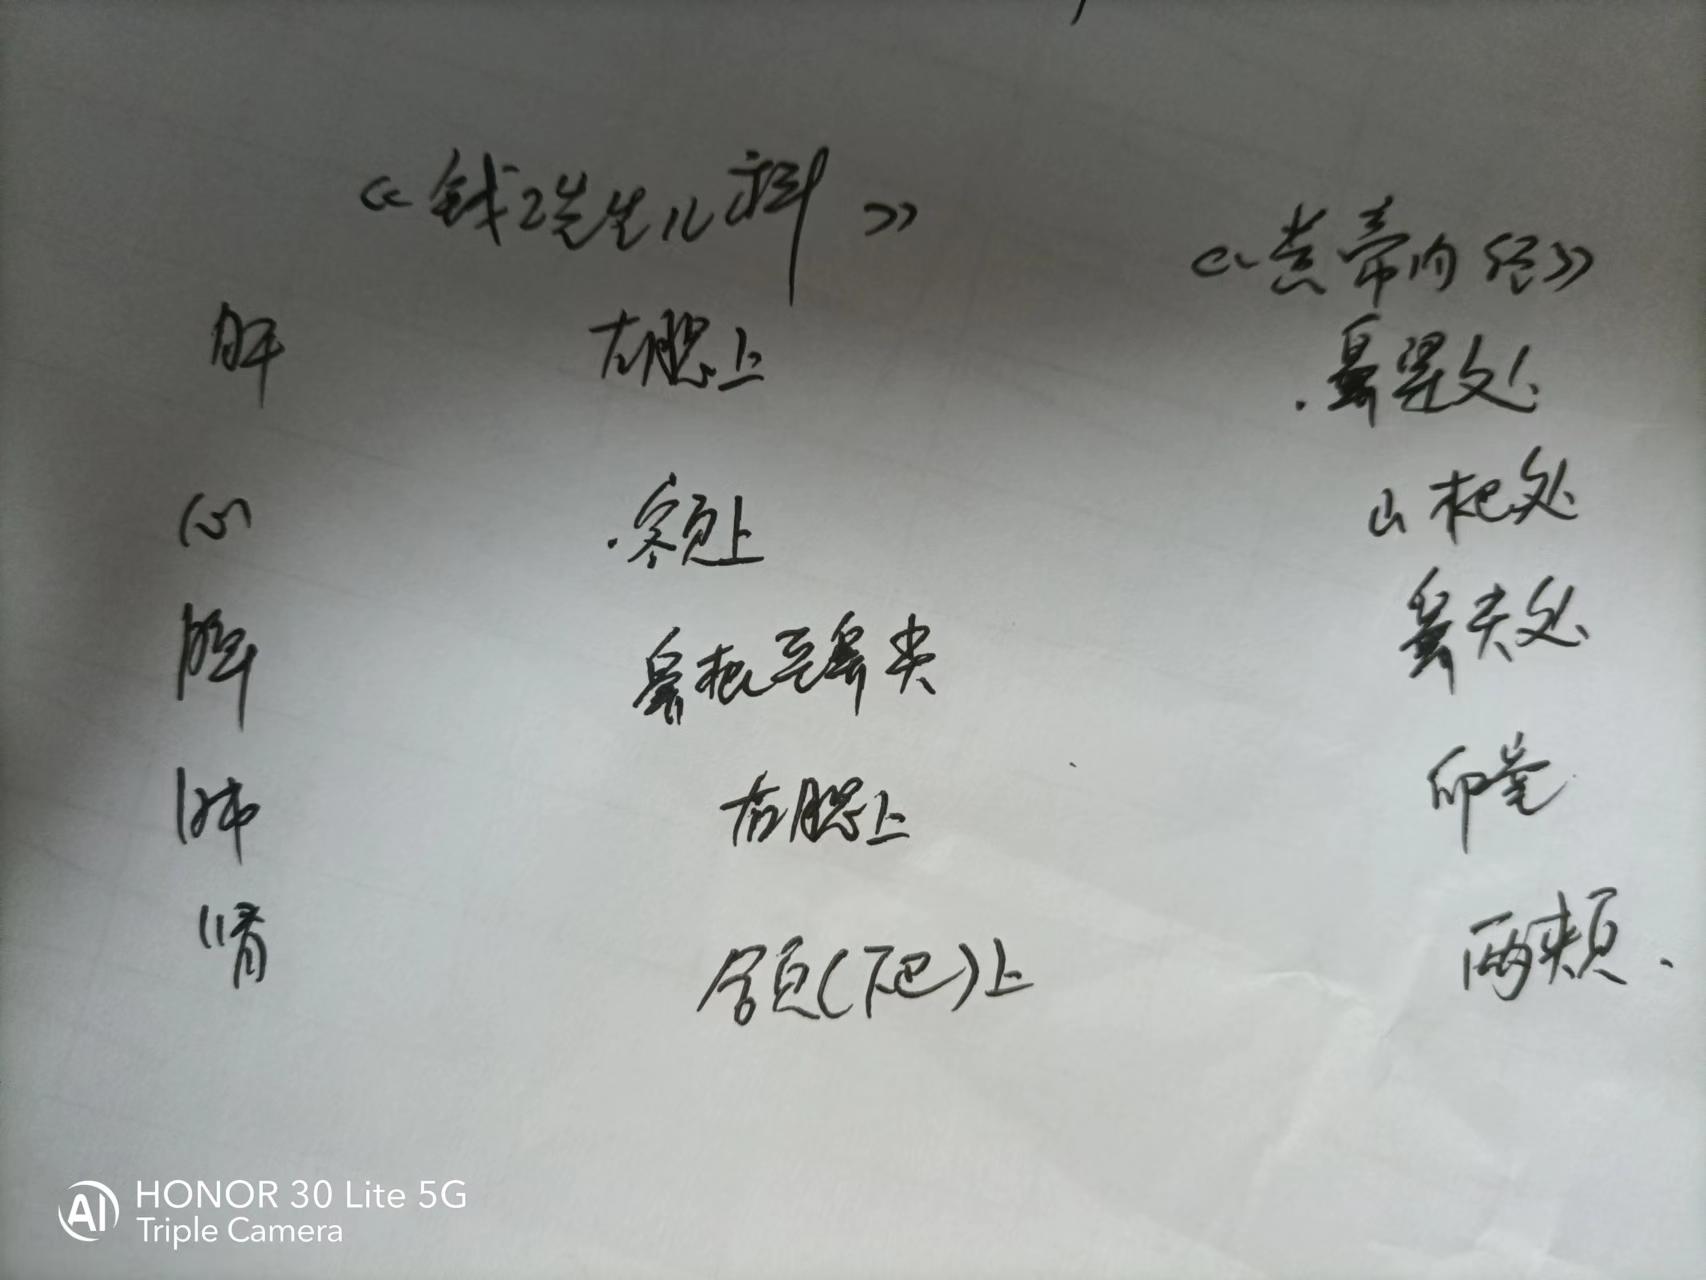 《钱乙先生儿科》 《黄帝内经》
肝 左腮上 鼻梁处
心 额上 山根处
脾 鼻根至鼻尖 鼻尖处
肺 右腮上 印堂
肾 颌(下巴)上 两颊
HONOR 30 Lite 5G
Triple Camera
AI